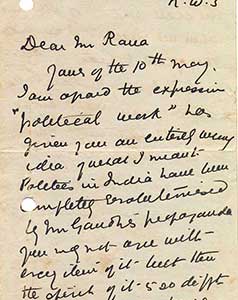 N.W.3
Dear Mr Rana
Yours of the 10th May.
I am afraid the expression
"political work" has
given you an entirely wrong
idea of what I meant
Politics in India have been
completely revolutionised
by Mr Gandhi's propaganda
You may not agree with
every item of it - but then
the spirit of it is so diff